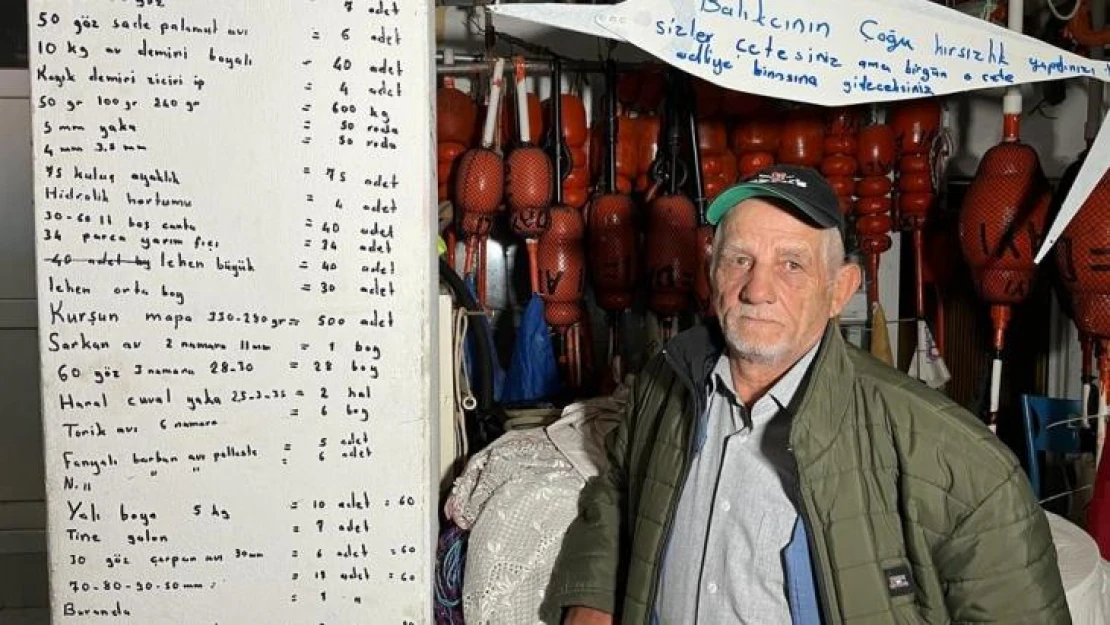 göz 7 adet
50 göz sade palamut avı = 6 adet
10 kg av demiri boyalı - 40 adet
Kayık demiri zinciri ip = 4 adet
50 gr 100 gr 240 gr = 600 kg
5 mm yaka = 50 roda
4 mm 3,8 mm = 50 roda
75 kuluç ayaklık = 75 adet
Hidrolik hortumu = 4 adet
30-60 lı boş çanta = 40 adet
34 parça yarım fıçı = 34 adet
40 adet lehen büyük = 40 adet
lehen orta boy = 30 adet
Kurşun mapa 330-280 gr = 500 adet
Sarkan av 2 namara 11mm = 1 boy
60 göz 3 namara 28-30 = 28 boy
Haral çuval yaka = 2 hal
= 6 boy
Torik avı 6 namara
Fanyalı barban avı = 5 adet
N. 11 " " = 6 adet
Yalı boya 5 kg = 10 adet = 60
Tine galon = 7 adet
30 göz çarpan avı 30mm = 6 adet = 60
70-80-90-50mm = 18 adet = 60
Baranda = 1 "
Balıkçının Çoğu hırsızlık yapdınız
sizler çetesiniz ama birgün o çete
adliye binasına gideceksiniz